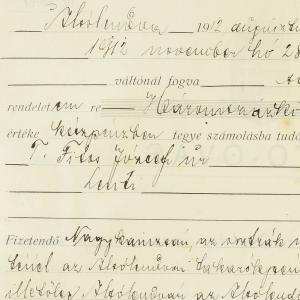 Alsólendva 1912 augusztu
1912 november hó 28
váltónál fogva
rendeletem re Háromszázko
értéke készpénzben tegye számolásba tudó
T. Filos József úr
Lenti
Fizetendő Nagykanizsán, az osztrák
ténél az Alsólendvai takarékpén
illetőleg Alsólendván az Alsólend